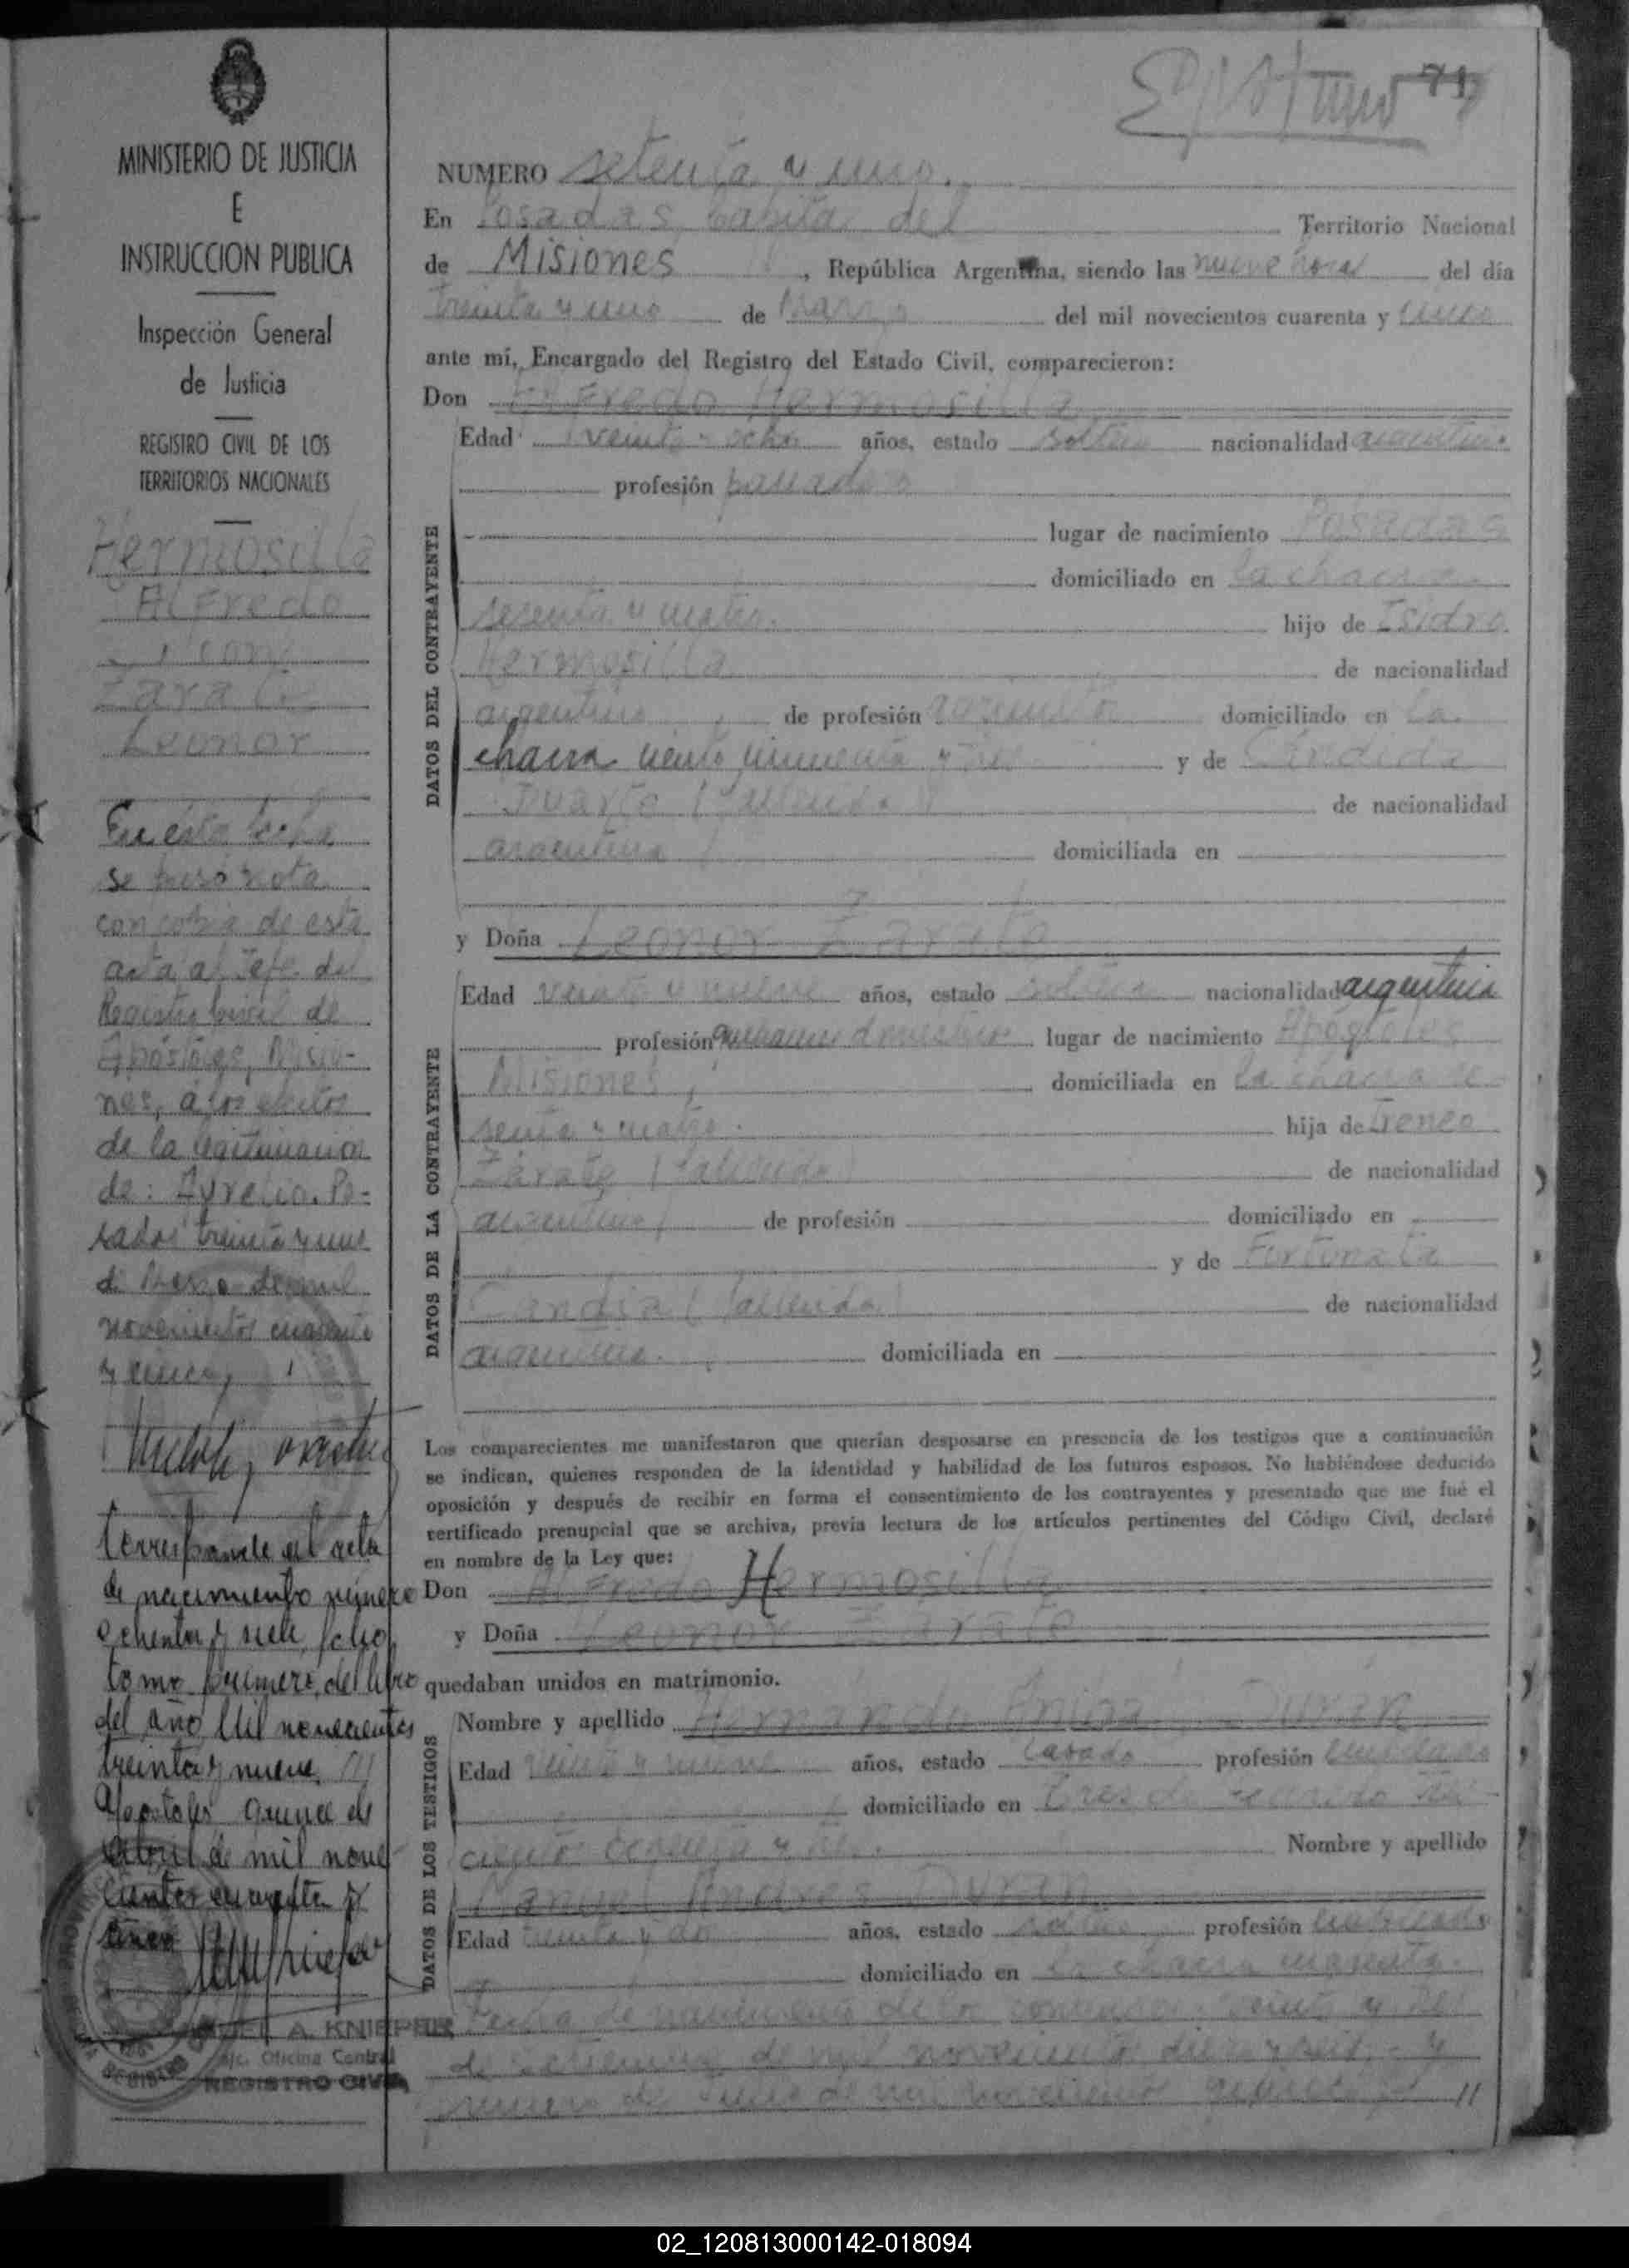 71
MINISTERIO DE JUSTICIA
E
INSTRUCCION PUBLICA
Inspección General
de Justicia
REGISTRO CIVIL DE LOS
TERRITORIOS NACIONALES
Hermosilla
Alfredo
con
Zarate
Leonor
En esta fecha
se puso nota
con copia de esta
acta al Jefe del
Registro Civil de
Apóstoles, Misio-
nes, a los efectos
de la legitimacion
de: Aurelia. Po-
sadas treinta y uno
de Marzo de mil
novecientos cuarenta
y cinco,
Corresponde al acta
de nacimiento número
ochenta y siete, folio
tomo primero, del libro
del año Mil novecientos
treinta y nueve.
Apostoles quince de
Abril de mil nove
cientos cuarenta y
cinco
A. KNIEPER
Oficina Central
REGISTRO CIVIL
NUMERO setenta y uno.
En Posadas Capital del Territorio Nacional
de Misiones, República Argentina, siendo las nueve horas del día
treinta y uno de Marzo del mil novecientos cuarenta y cinco
ante mí, Encargado del Registro del Estado Civil, comparecieron:
Don Alfredo Hermosilla
DATOS DEL CONTRAYENTE
Edad veinte y ocho años, estado soltero nacionalidad argentino
profesión
lugar de nacimiento Posadas
domiciliado en la chacra
sesenta y cuatro. hijo de Isidro
Hermosilla de nacionalidad
argentino, de profesión domiciliado en la
chacra ciento cincuenta y y de Cándida
Duarte (fallecida) de nacionalidad
argentina domiciliada en
y Doña Leonor Zárate
DATOS DE LA CONTRAYENTE
Edad veinte y nueve años, estado soltera nacionalidad argentina
profesión quehaceres domésticos lugar de nacimiento Apóstoles
Misiones, domiciliada en la chacra se-
senta y cuatro. hija de Ireneo
Zárate (fallecido) de nacionalidad
argentino, de profesión domiciliado en
y de Fortunata
Candia (fallecida) de nacionalidad
argentina. domiciliada en
Los comparecientes me manifestaron que querían desposarse en presencia de los testigos que a continuación
se indican, quienes responden de la identidad y habilidad de los futuros esposos. No habiéndose deducido
oposición y después de recibir en forma el consentimiento de los contrayentes y presentado que me fué el
certificado prenupcial que se archiva, previa lectura de los artículos pertinentes del Código Civil, declaré
en nombre de la Ley que:
Don Alfredo Hermosilla
y Doña Leonor Zárate
quedaban unidos en matrimonio.
DATOS DE LOS TESTIGOS
Nombre y apellido Hernando Duran
Edad veinte y nueve años, estado casado profesión empleado
domiciliado en
Nombre y apellido
Manuel Andres Duran
Edad treinta y dos años, estado soltero profesión empleado
domiciliado en la chacra cuarenta.
Fecha de nacimiento de los veinte y
de de mil novecientos diez y seis y
primero de de mil novecientos quince
02_120813000142-018094